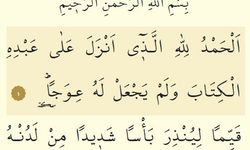 بِسْمِ اللهِ الرَّحْمٰنِ الرَّحِيمِ
اَلْحَمْدُ لِلّٰهِ الَّذٖٓي اَنْزَلَ عَلٰى عَبْدِهِ
الْكِتَابَ وَلَمْ يَجْعَلْ لَهُ عِوَجًاࣝ ١
قَيِّمًا لِيُنْذِرَ بَأْسًا شَدٖيدًا مِنْ لَدُنْهُ